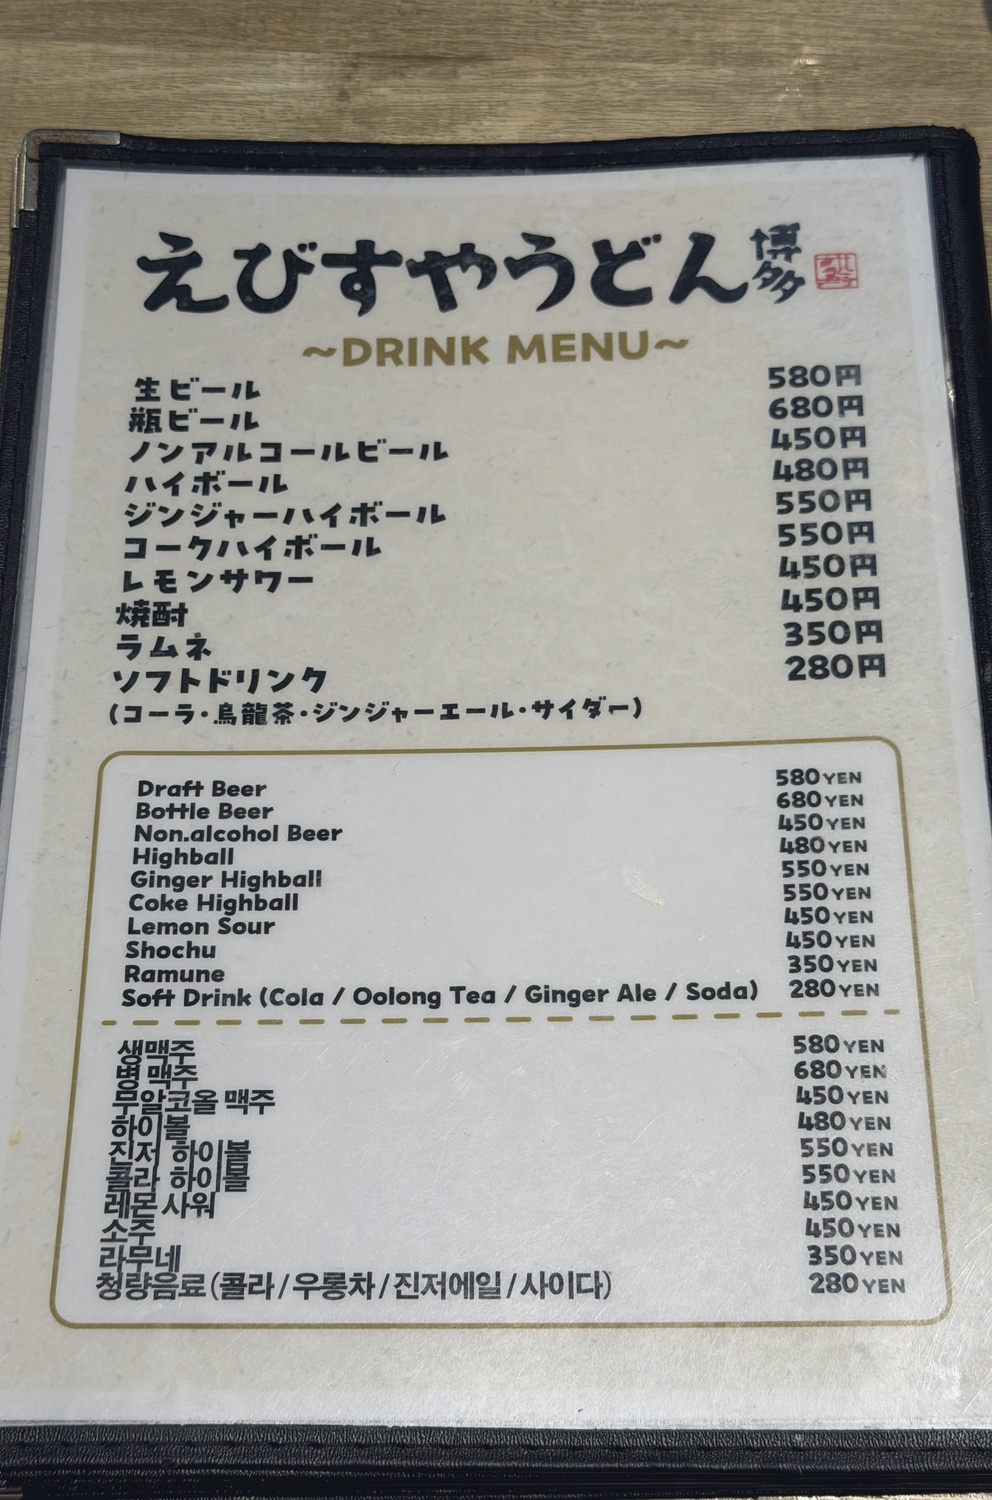 えびすやうどん 博多
~DRINK MENU~
生ビール 580円
瓶ビール 680円
ノンアルコールビール 450円
ハイボール 480円
ジンジャーハイボール 550円
コークハイボール 550円
レモンサワー 450円
焼酎 450円
ラムネ 350円
ソフトドリンク 280円
(コーラ・烏龍茶・ジンジャーエール・サイダー)
Draft Beer 580YEN
Bottle Beer 680YEN
Non.alcohol Beer 450YEN
Highball 480YEN
Ginger Highball 550YEN
Coke Highball 550YEN
Lemon Sour 450YEN
Shochu 450YEN
Ramune 350YEN
Soft Drink (Cola / Oolong Tea / Ginger Ale / Soda) 280YEN
생맥주 580YEN
병 맥주 680YEN
무알코올 맥주 450YEN
하이볼 480YEN
진저 하이볼 550YEN
콜라 하이볼 550YEN
레몬 사워 450YEN
소주 450YEN
라무네 350YEN
청량음료 (콜라 / 우롱차 / 진저에일 / 사이다) 280YEN